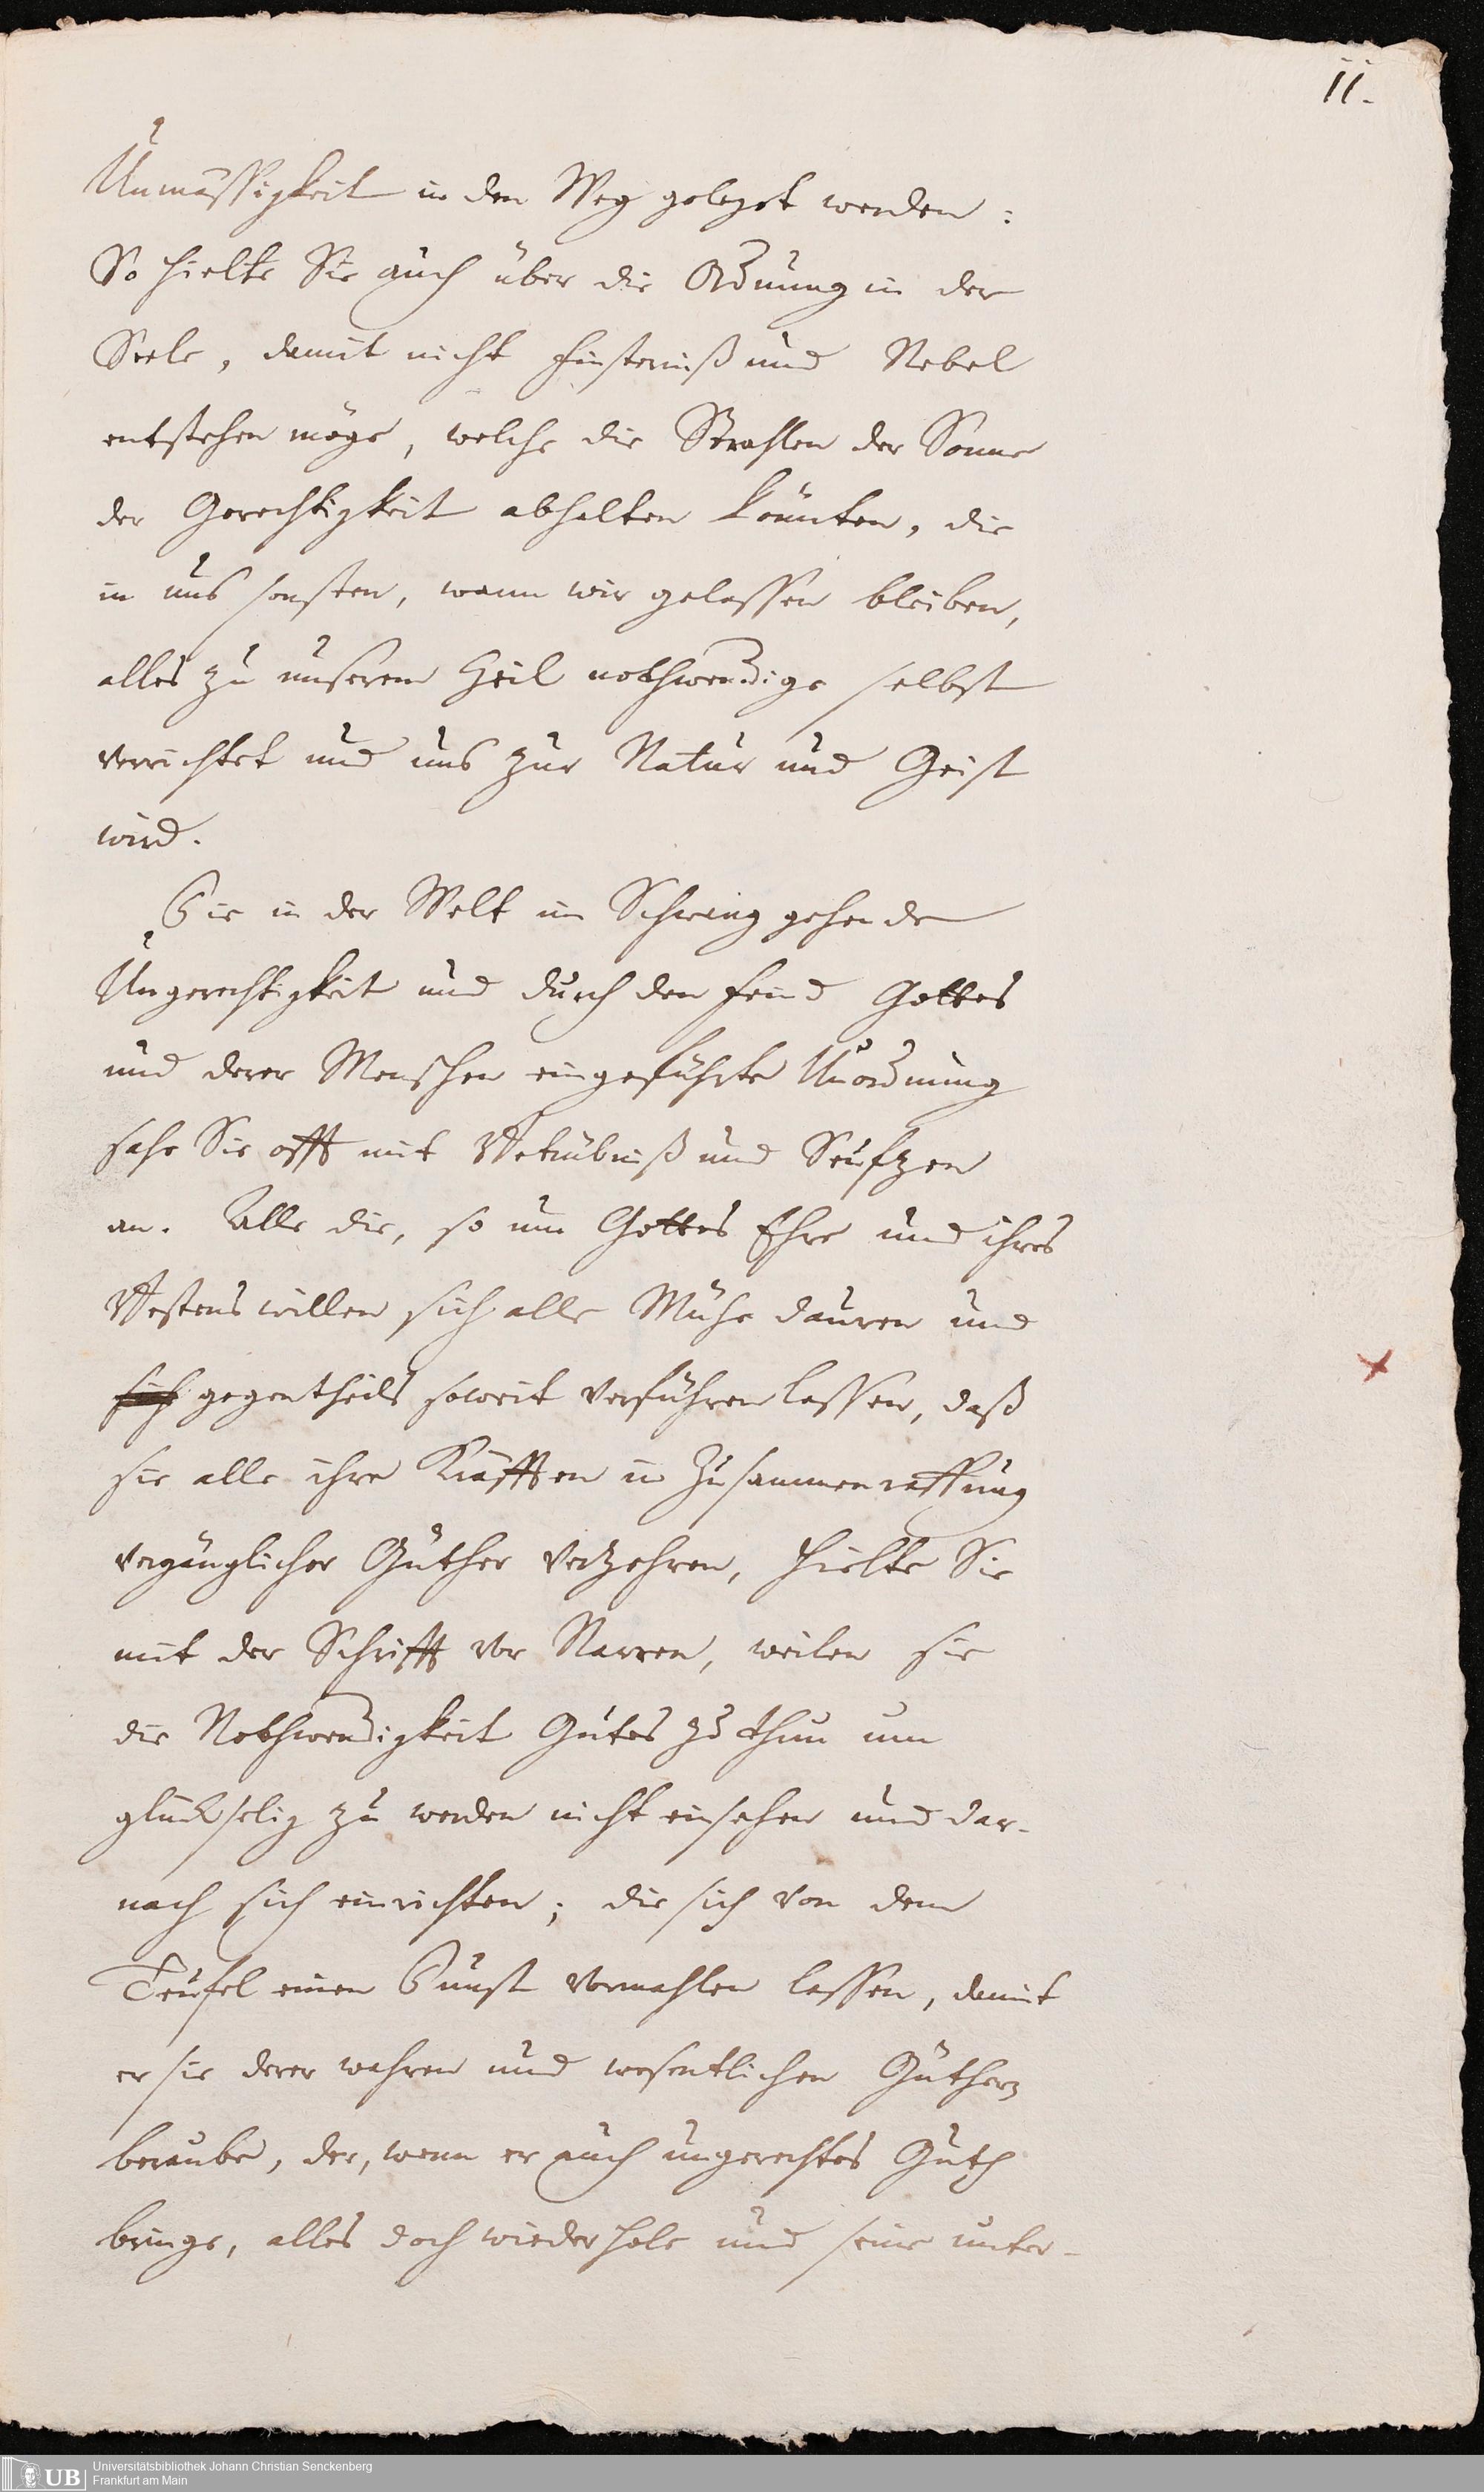 11.
Unmässigkeit in den Weg geleget werden:
So hielte Sie auch über die Ordnung in der
Seele, damit nicht Finsterniß und Nebel
entstehen möge, welche die Strahlen der Sonne
der Gerechtigkeit abhalten könnten, die
in uns sonsten, wann wir gelassen bleiben,
alles zu unserem Heil nothwendige selbst
verrichtet und uns zur Natur und Geist
wird.
Die in der Welt im Schwang gehende
Ungerechtigkeit und durch den Feind Gottes
und derer Menschen eingeführte Unordnung
sahe Sie offt mit Betrübniß und Seufzen
an. Alle die, so um Gottes Ehre und ihres
Bestens willen sich alle Mühe dauren und
sich gegentheils soweit verführen lassen, daß
sie alle ihre Kräfften in Zusammenraffung
vergänglicher Güther verzehren, hielte Sie
mit der Schrifft vor Narren, weilen sie
die Nothwendigkeit Gutes zu thun um
glückselig zu werden nicht einsehen und dar-
nach sich einrichten; die sich von dem
Teufel einen Dunst vormahlen lassen, damit
er sie derer wahren und wesentlichen Güther
beraube, der, wenn er auch ungerechtes Guth
bringe, alles doch wieder hole und seine unter-
Universitätsbibliothek Johann Christian Senckenberg
Frankfurt am Main
UB